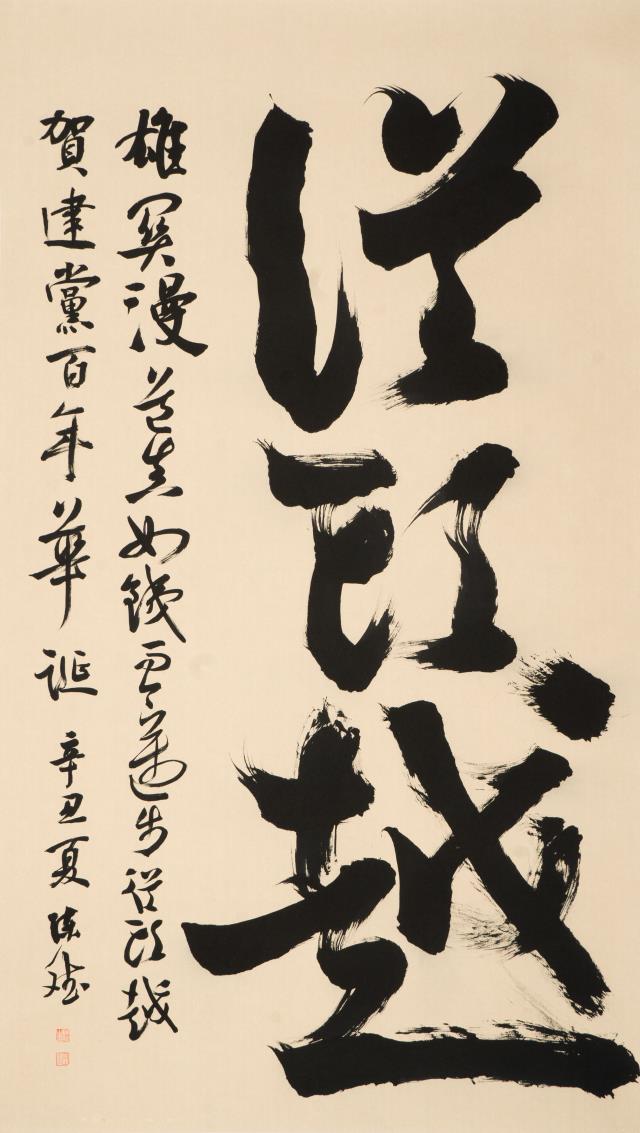 從頭越
雄關漫道真如鐵而今邁步從頭越
賀建黨百年華誕 辛丑夏